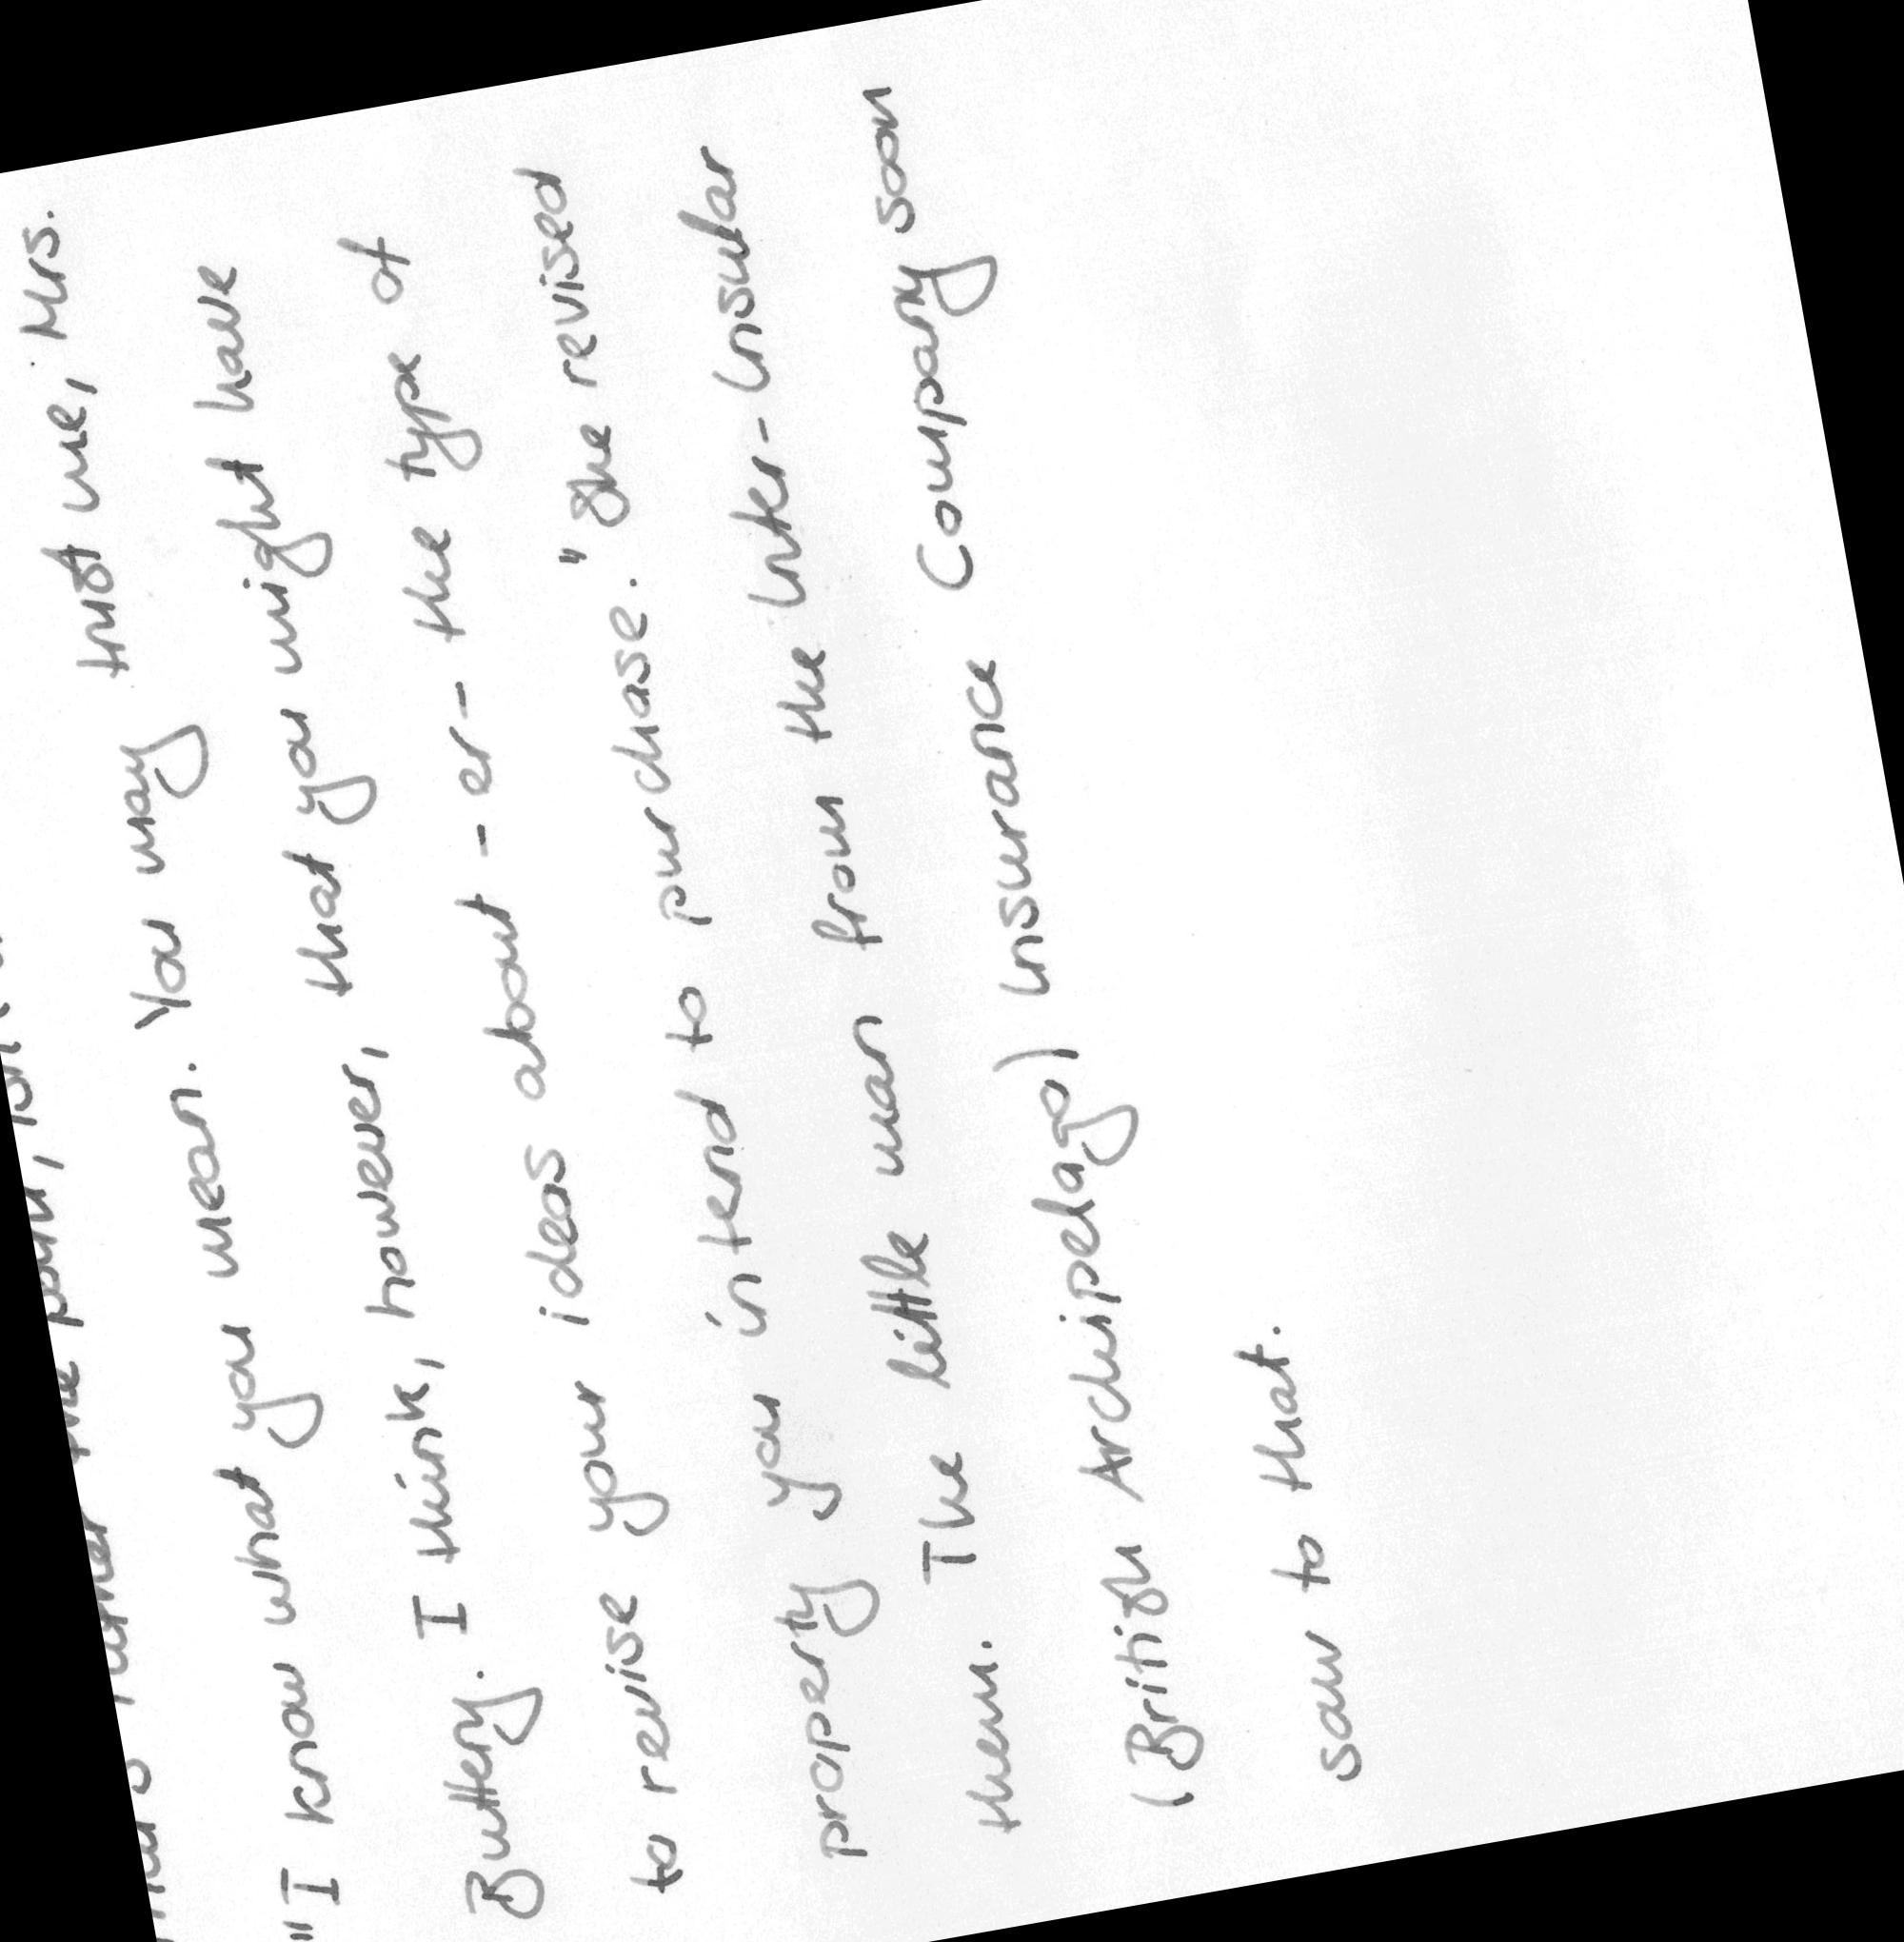 rather the point, isn't
"I know what you mean. You may trust me, Mrs.
Buttery. I think, however, that you might have
to revise your ideas about - er - the type of
property you intend to purchase." She revised
them. The little man from the Inter-Insular
(British Archipelago) Insurance Company soon
saw to that.